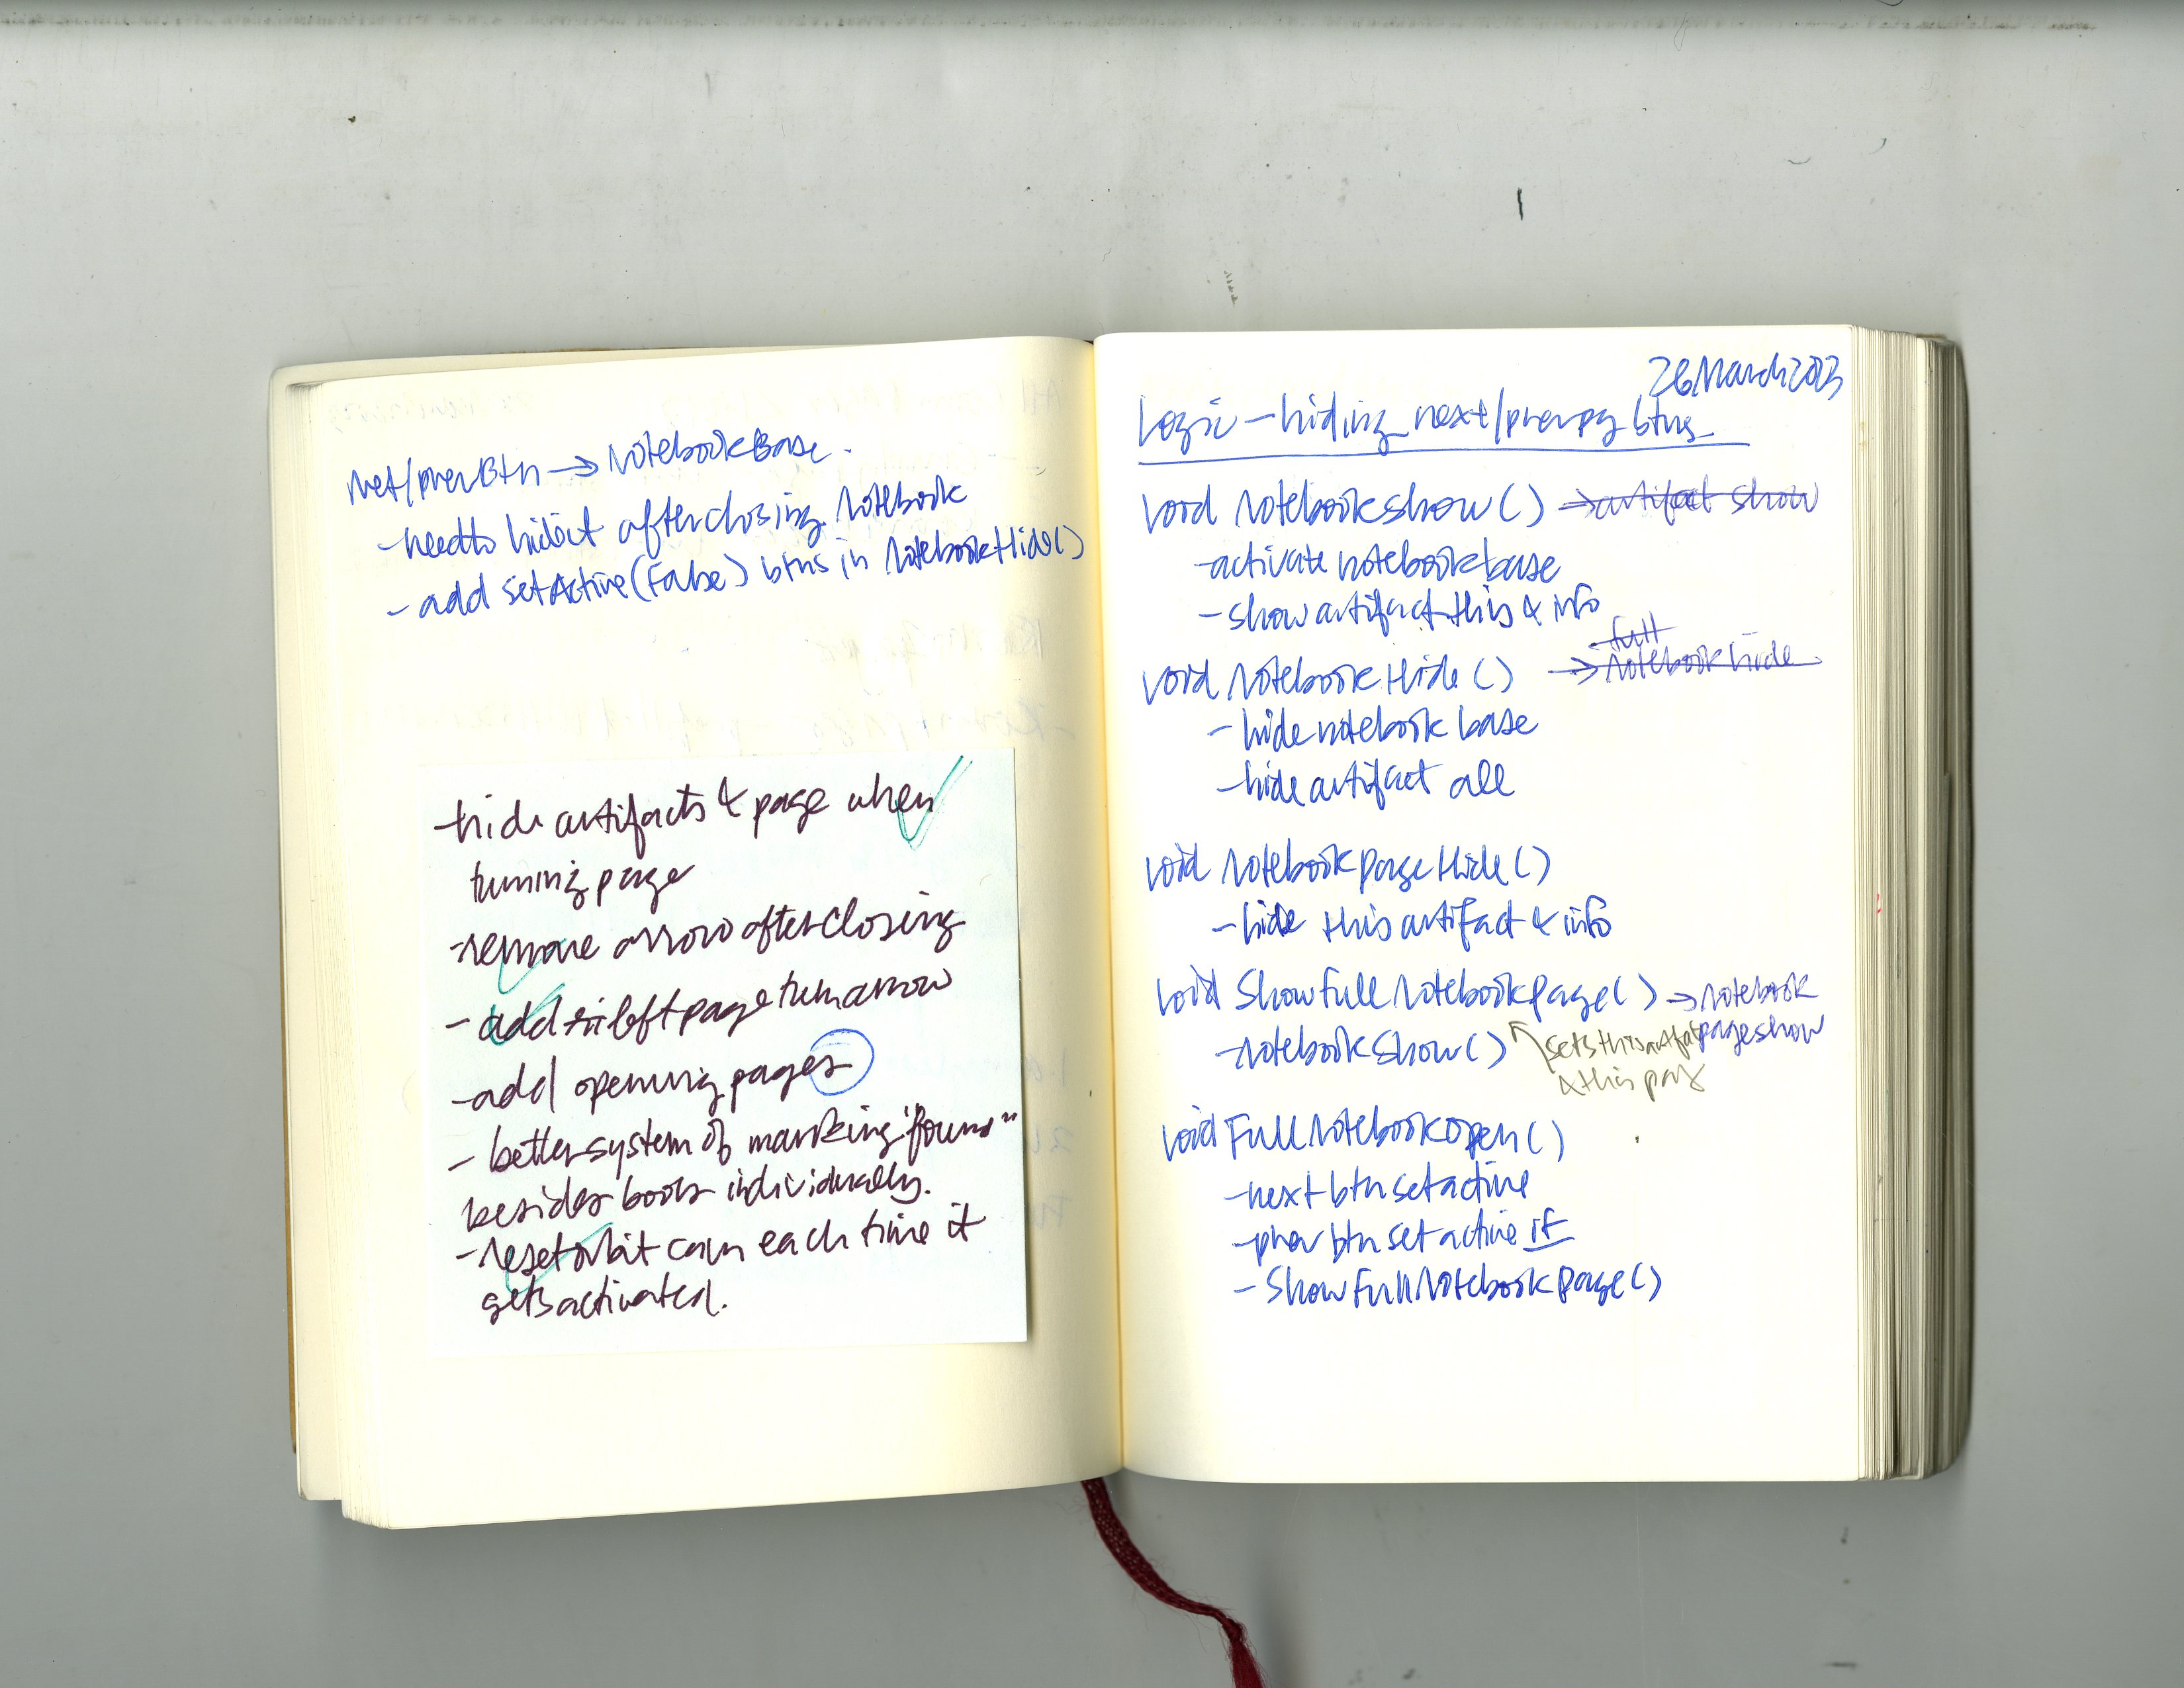 net/prevBtn → NotebookBase.
- need to hide it after closing Notebook
- add setActive(False) btns in NotebookHide()
- hide artifacts & page when
turning page
- remove arrow after closing
- add left page turn arrow
- add opening pages
- better system of marking "found"
besides bools individually.
- reset orbit cam each time it
gets activated.
26 March 2023
Logic - hiding next/prev pg btns
void Notebookshow() → artifact show
- activate notebook base
- show artifact this & info
full
void NotebookHide() → Notebook hide
- hide notebook base
- hide artifact all
void NotebookpageHide()
- hide this artifact & info
void ShowfullNotebookpage() → Notebook
pageshow
- notebookshow() sets this artifact
& this page
void FullNotebookopen()
- next btn set active
- prev btn set active if
- ShowFullNotebookpage()